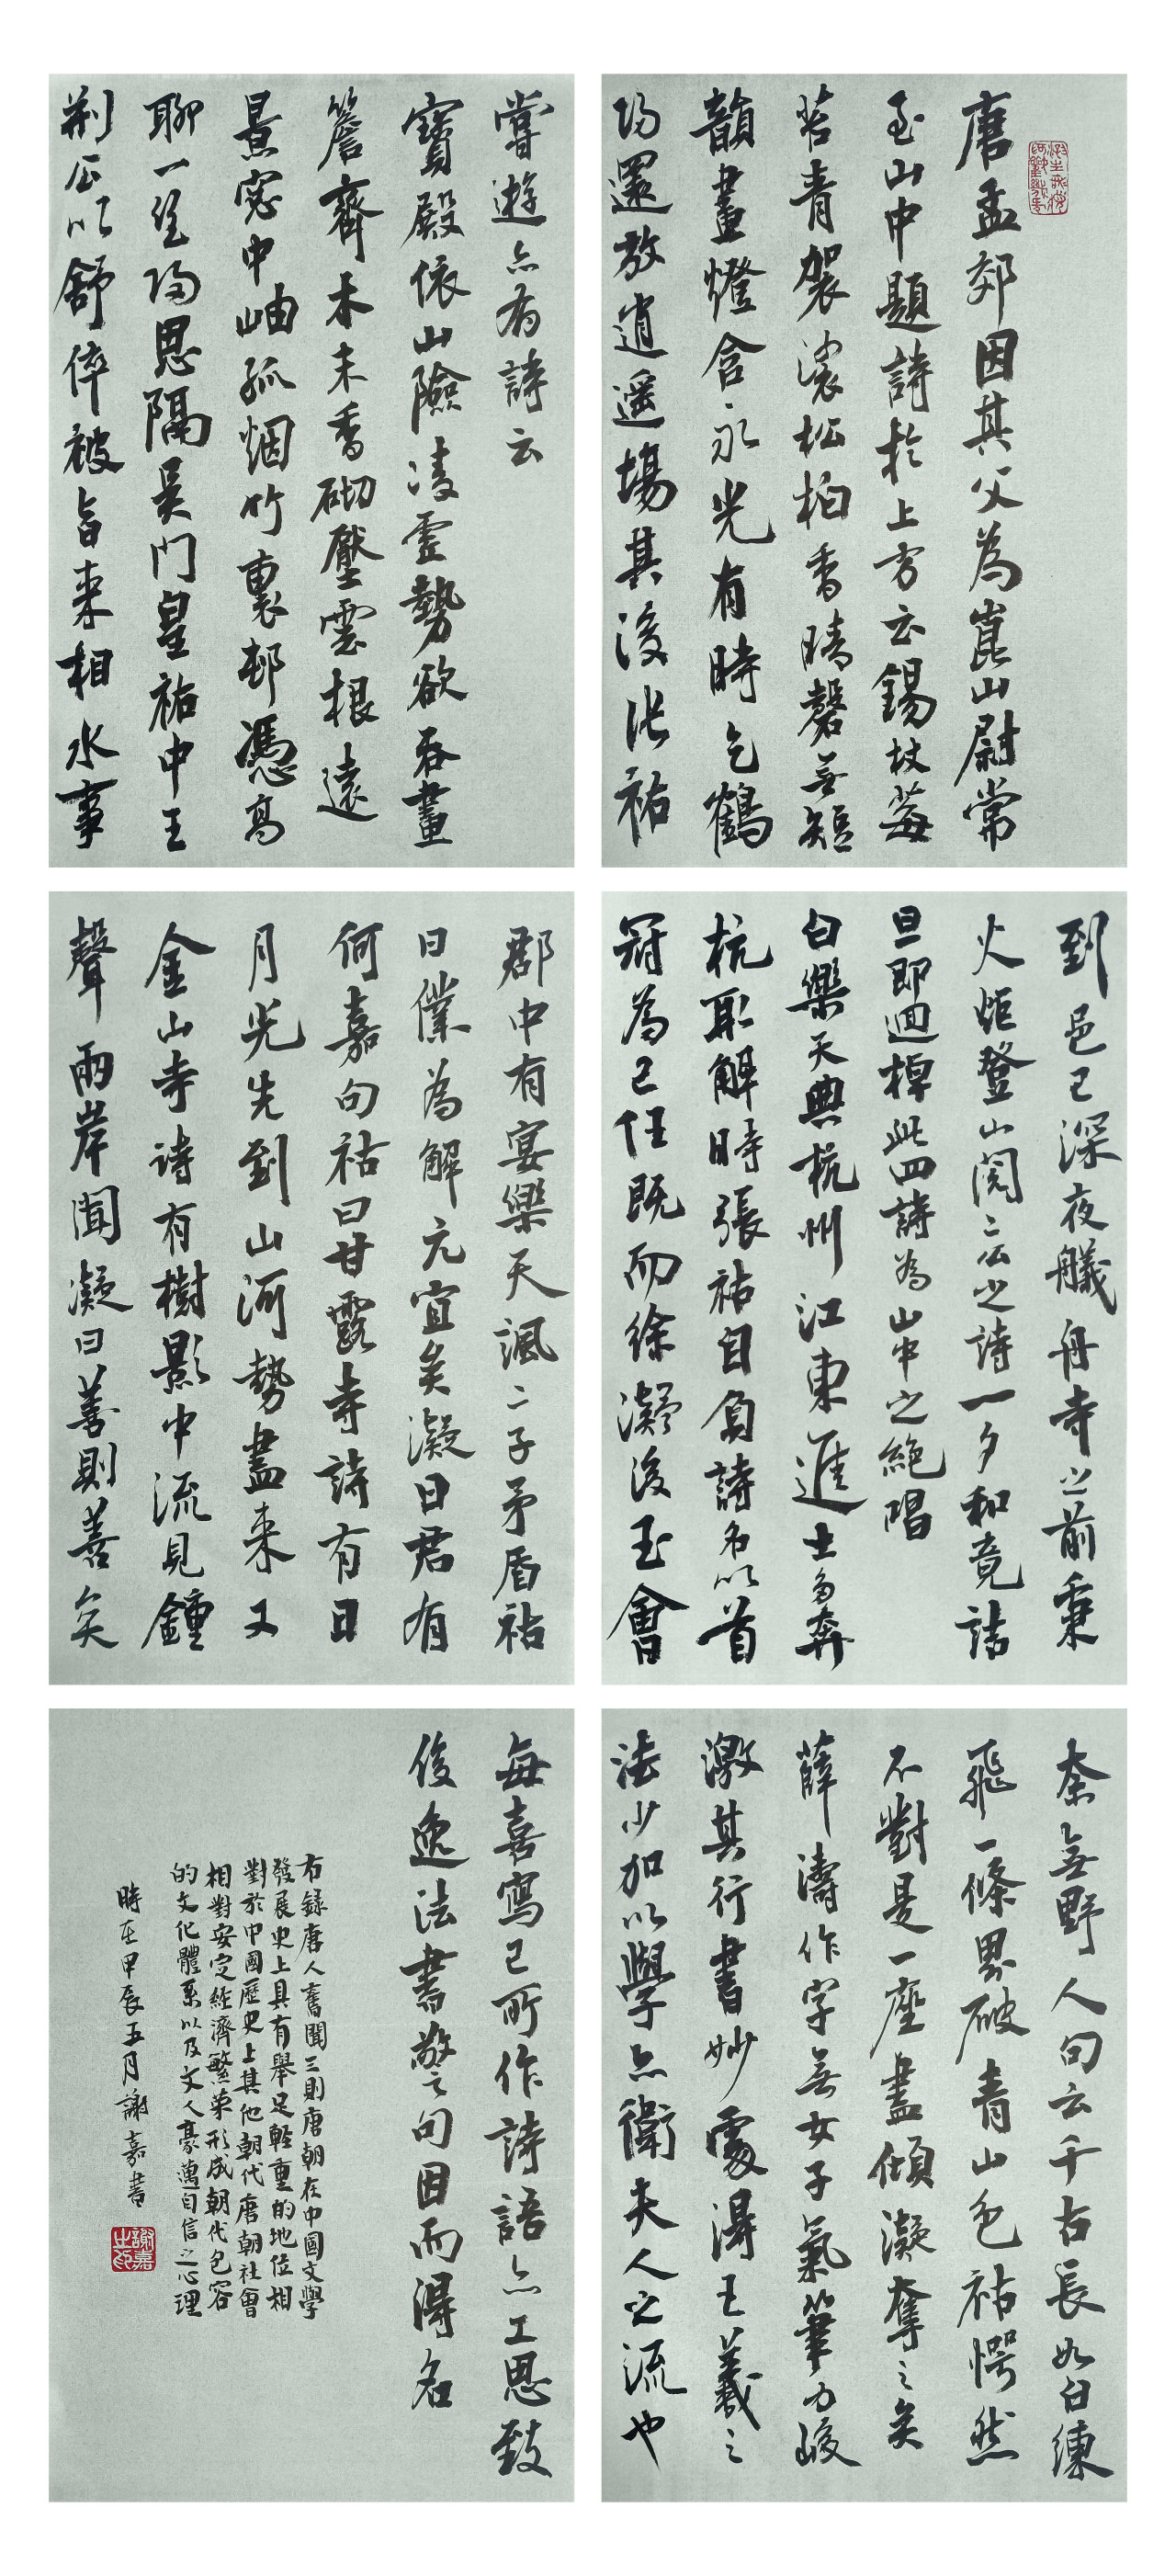 唐孟郊因其父為崑山尉常
至山中題詩於上方云錫杖莓
苔青袈裟松柏香晴磬無短
韻晝燈含永光有時乞鶴
歸還放逍遙場其後張祜
嘗遊亦有詩云
寶殿依山險凌虛勢欲吞畫
簷齊木末香砌壓雲根遠
景窓中岫孤烟竹裏邨憑高
聊一望歸思隔吳門皇祐中王
荊公以舒倅被旨來相水事
到邑已深夜艤舟寺之前秉
火炬登山閱二公之詩一夕和竟詰
旦即迴棹此四詩為山中之絕唱
白樂天典杭州江東進士多奔
杭取解時張祜自負詩名以首
冠為己任既而徐凝後至會
郡中有宴樂天諷二子矛盾祜
曰僕為解元宜矣凝曰君有
何嘉句祜曰甘露寺詩有日
月光先到山河勢盡來又
金山寺詩有樹影中流見鐘
聲兩岸聞凝曰善則善矣
奈無野人句云千古長如白練
飛一條界破青山色祜愕然
不對是一座盡傾凝奪之矣
薛濤作字無女子氣筆力峻
激其行書妙處得王羲之
法少加以學亦衛夫人之流也
每喜寫己所作詩語亦工思致
俊逸法書警句因而得名
右錄唐人舊聞三則唐朝在中國文學
發展史上具有舉足輕重的地位相
對於中國歷史上其他朝代唐朝社會
相對安定經濟繁榮形成朝代包容
的文化體系以及文人豪邁自信之心理
時在甲辰五月謝嘉書
謝嘉之印